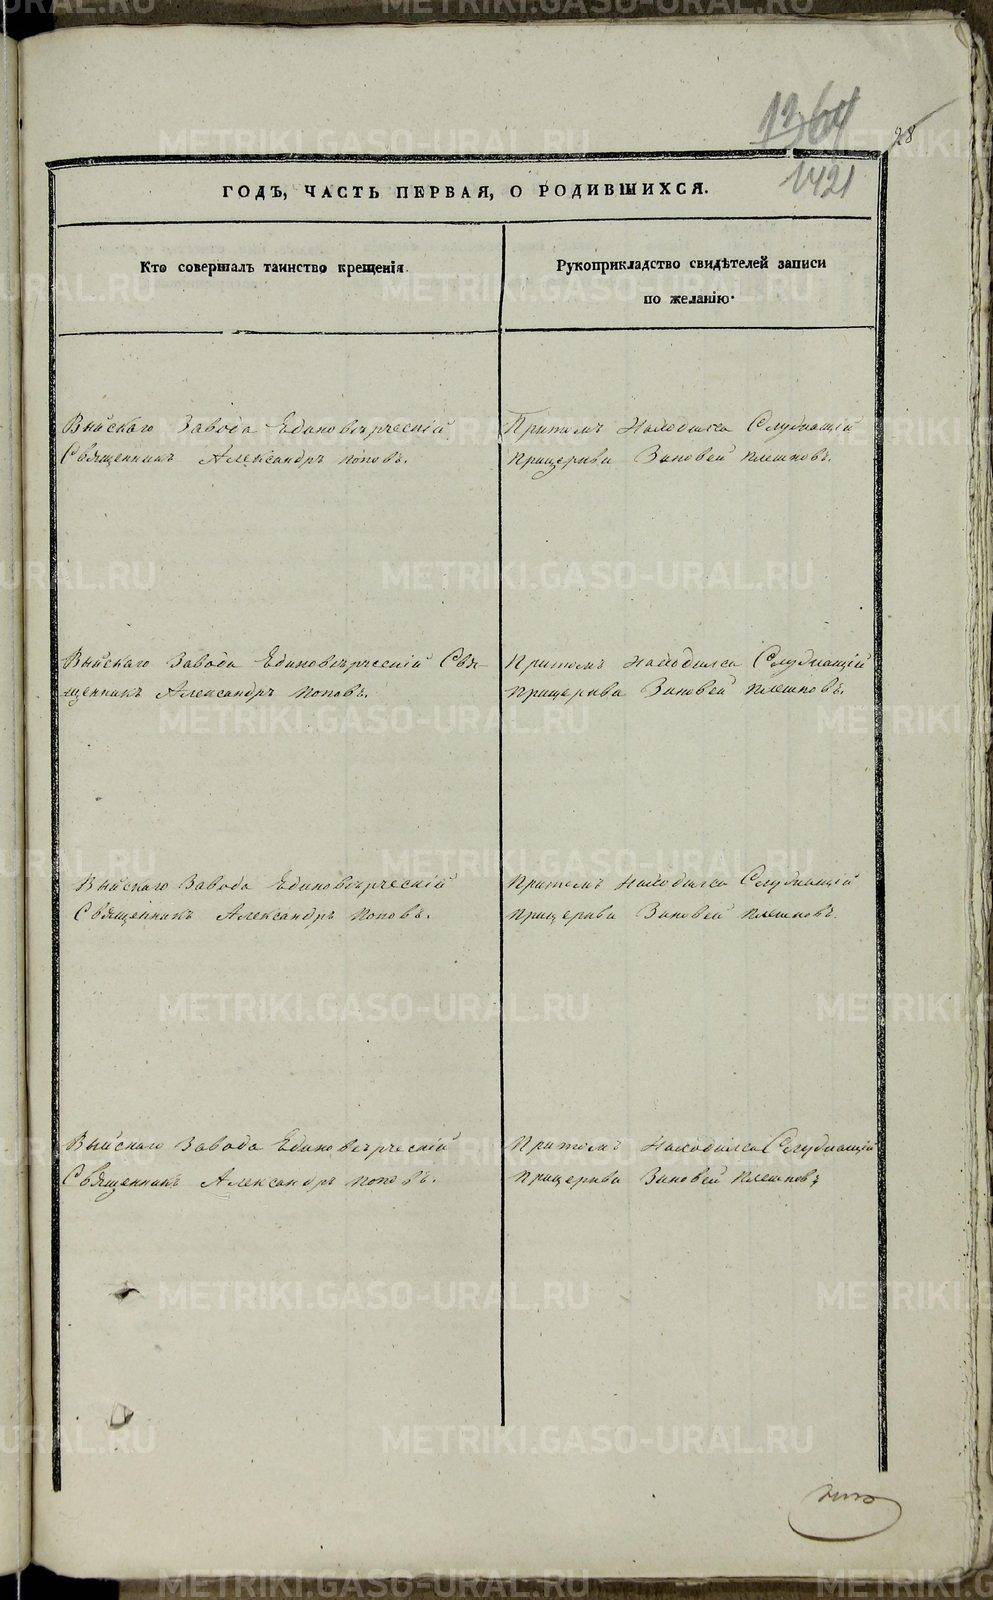 1364
28
1421
ГОДЪ, ЧАСТЬ ПЕРВАЯ, О РОДИВШИХСЯ.
Кто совершалъ таинство крещенія.
Рукоприкладство свидѣтелей записи
по желанію.
Выйскаго Завода Единовѣрческій
Священникъ Александръ Поповъ.
Притомъ находился Служащій
Прицеркви Зиновей Плешковъ.
Выйскаго Завода Единовѣрческій Свя-
щенникъ Александръ Поповъ.
Притомъ находился Служащій
Прицеркви Зиновей Плешковъ.
Выйскаго Завода Единовѣрческій
Священникъ Александръ Поповъ.
Притомъ находился Служащій
Прицеркви Зиновей Плешковъ.
Выйскаго Завода Единовѣрческій
Священникъ Александръ Поповъ.
Притомъ находился Служащій
Прицеркви Зиновей Плешковъ
METRIKI.GASO-URAL.RU